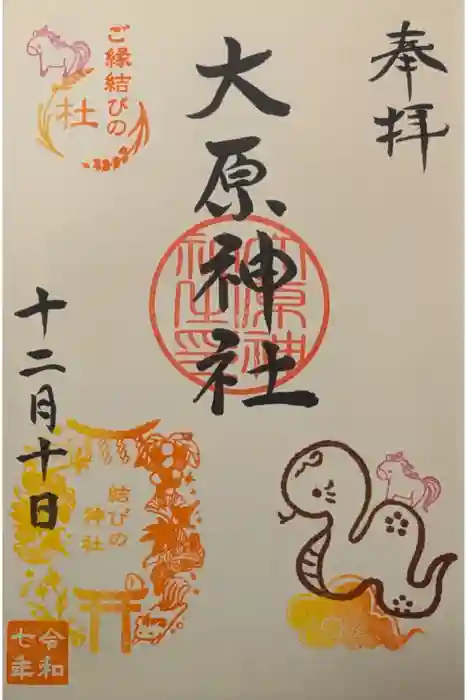 奉拝
大原神社
ご縁結びの
杜
十二月十日
結びの
神社
令和
七年